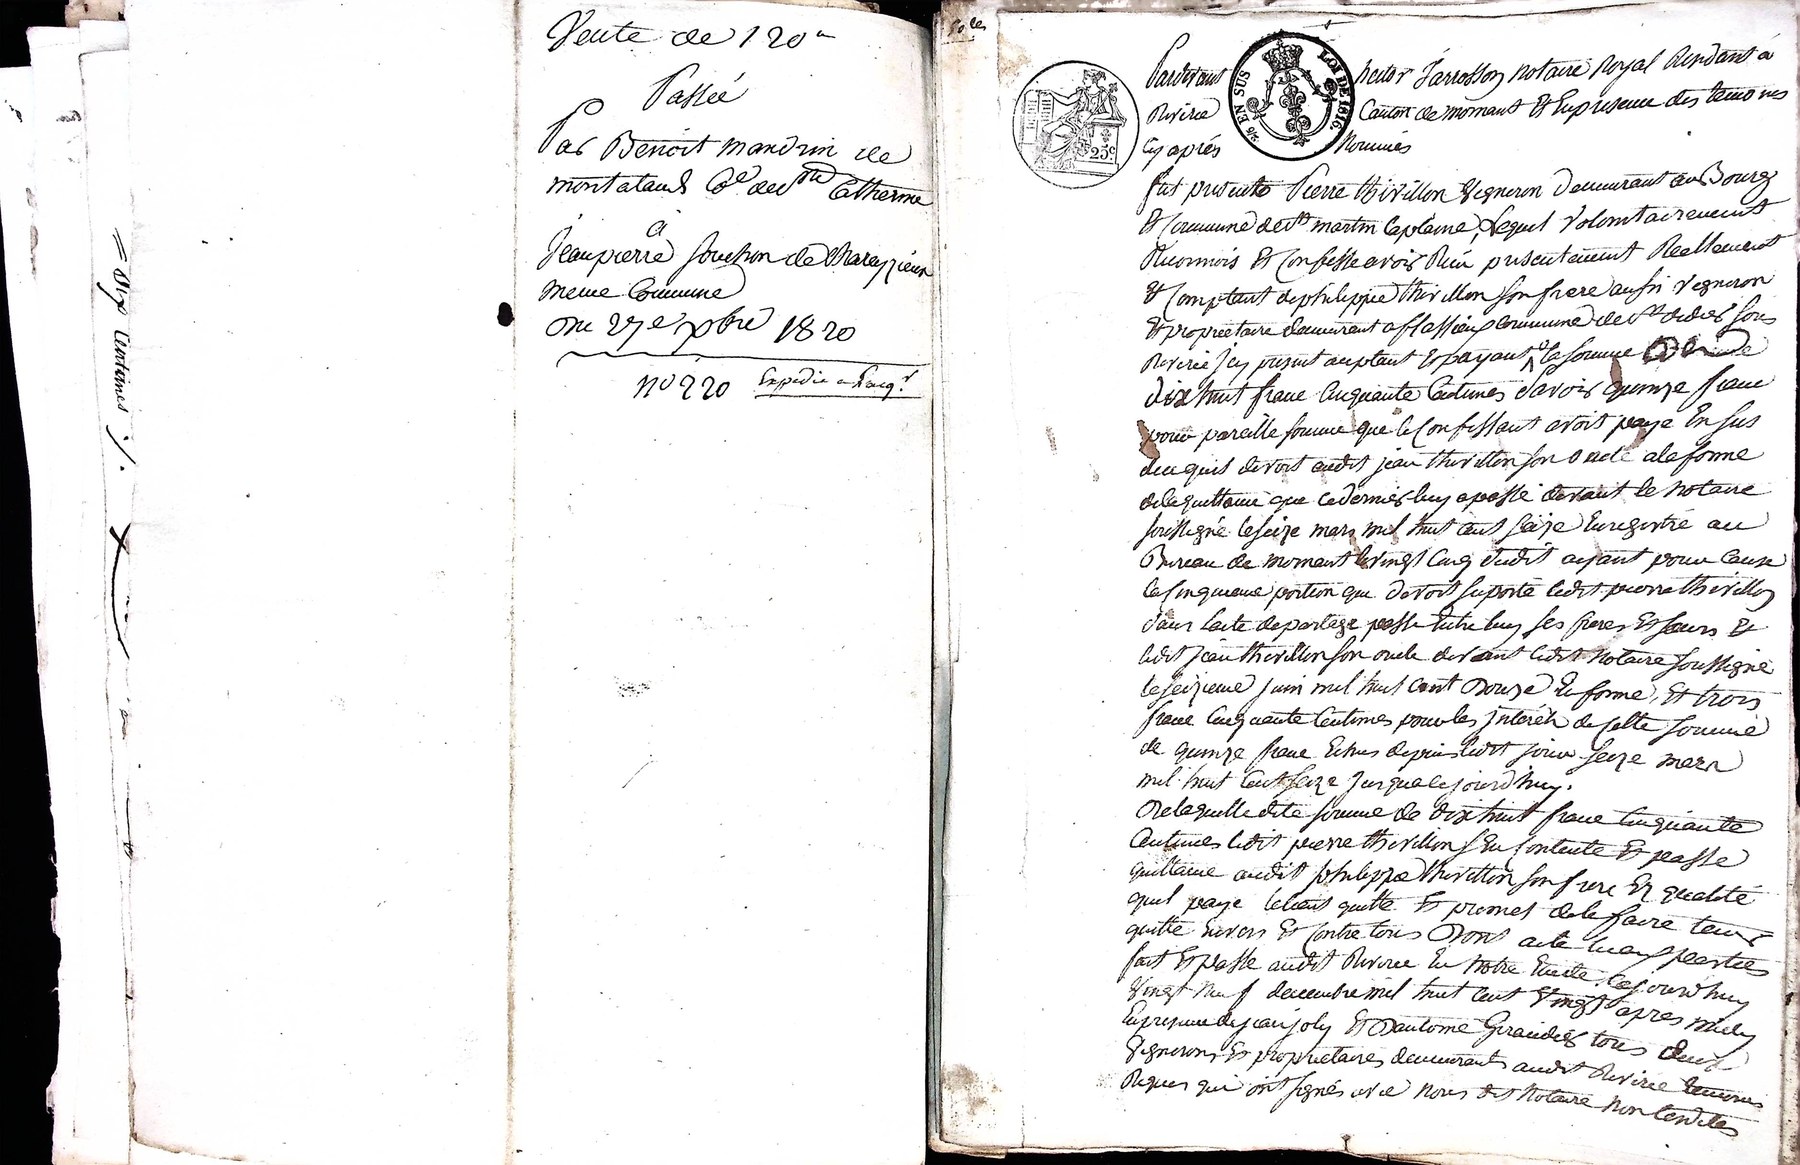 Dix Centimes ./.
Vente de 120 n
Passée
Par Benoit mandrin de
montataud Cne de Ste Catherine
a
Jean pierre souchon de
meme Commune
Du 27e xbre 1820
no 220 Expedié a l'acqr
50 les
Pardevant hector Jarrosson notaire Royal Residant à
Riviríe Canton de mornant Et En presence des temoins
Cy après Nommés
EN SUS
LOI DE 1816.
25c
fut present Pierre thivillon Vigneron demeurant au Bourg
Et Commune de St martin Laplaine, Lequel Volontairement
Reconnois Et Confesse avoir Recu presentement Reellement
Et Comptant de philippe thivillon son frere aussi Vigneron
Et proprietaire demeurant a flassieux commune de St didier sous
Riverie Icy present acceptant Et payant la somme de
dix huit franc Cinquante Centimes Savoir quinze franc
pour pareille somme que le Confessant avoit payé En sus
de ce quil devoit audit jean thivillon son oncle a la forme
de la quittance que ce dernier luy a passé devant le notaire
soussigné le seize mars mil huit cent seize Enregistré au
Bureau de mornant le vingt Cinq dudit ayant pour Cause
la Cinquieme portion que devoit suporté ledit pierre thivillon
dans lacte de partage passé Entre luy ses freres Et sœurs Et
ledit jean thivillon son oncle devant ledit Notaire soussigné
le seizieme juin mil huit cent Douze En forme, Et trois
franc Cinquante Centimes pour les Interêts de cette somme
de quinze franc Echus depuis ledit jour seize mars
mil huit Cent seize jusqua ce jourd'huy.
De laquelle dite somme de dix huit franc Cinquante
Centimes ledit pierre thivillon sen Contente Et passe
quittance audit philippe thivillon son frere En qualité
quil paye le tient quitte Et promet de le faire tenir
quitte Envers Et Contre tous Dont acte lu aux parties
fait Et passé audit Riverie En notre Etude, Cejourd'huy
Vingt Neuf decembre mil huit cent Vingt apres midy
En presence de jean joly Et D'antoine Giraudier tous deux
Vignerons Et proprietaires demeurants audit Riverie temoins
Requis qui ont signés avec Nous dit Notaire Non lesdites